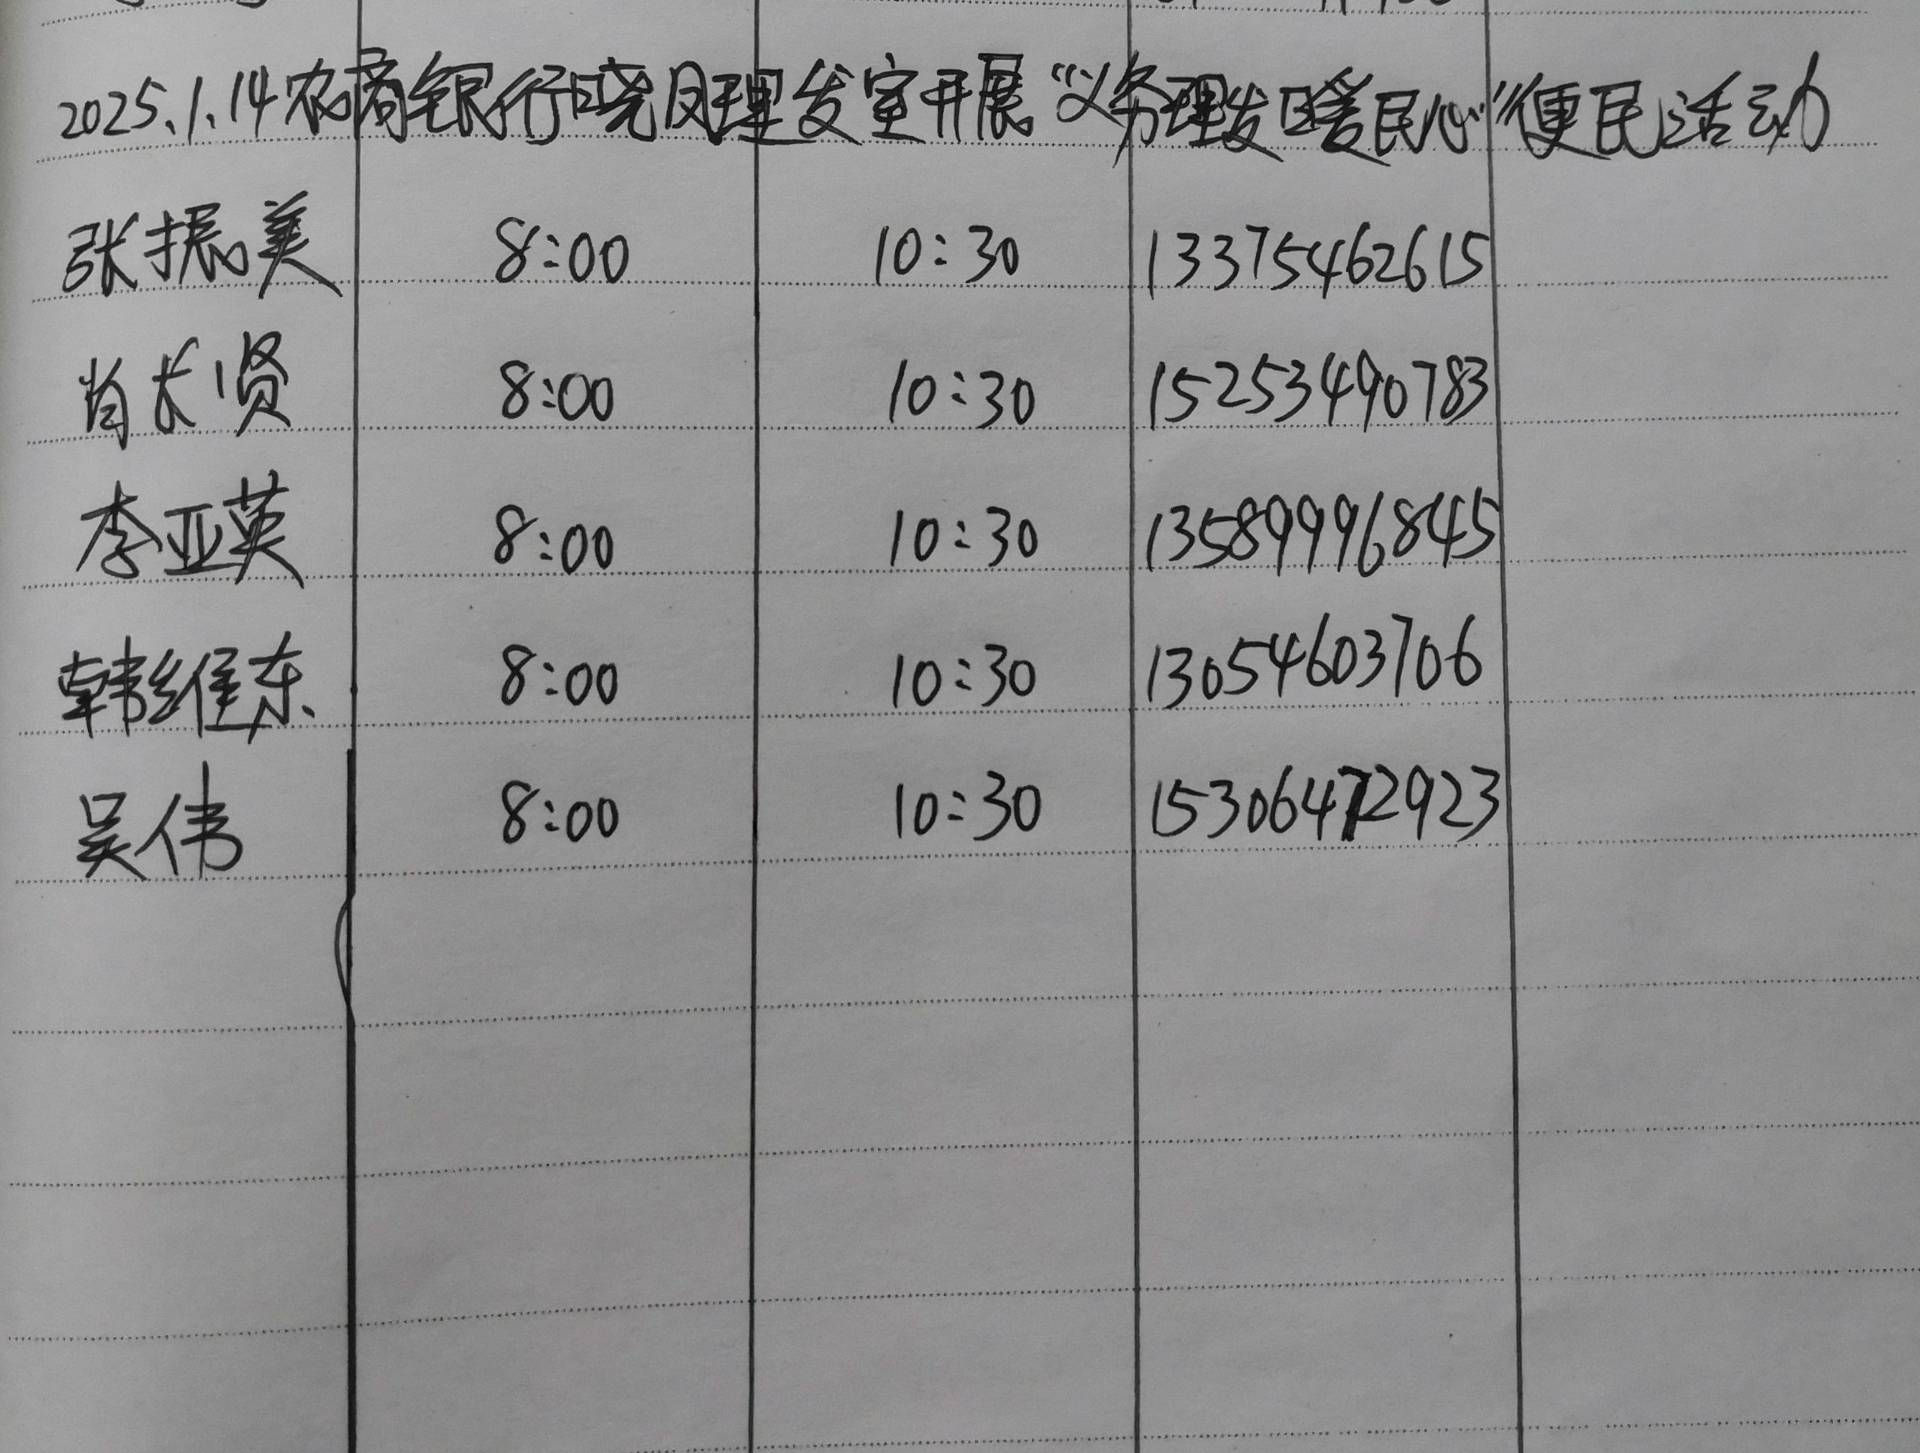 2025.1.14农商银行晓月理发室开展“义务理发暖民心”便民活动
张振美 8:00 10:30 13375462615
肖长贤 8:00 10:30 15253490783
李亚英 8:00 10:30 13589996845
韩维东 8:00 10:30 13054603706
吴伟 8:00 10:30 15306472923